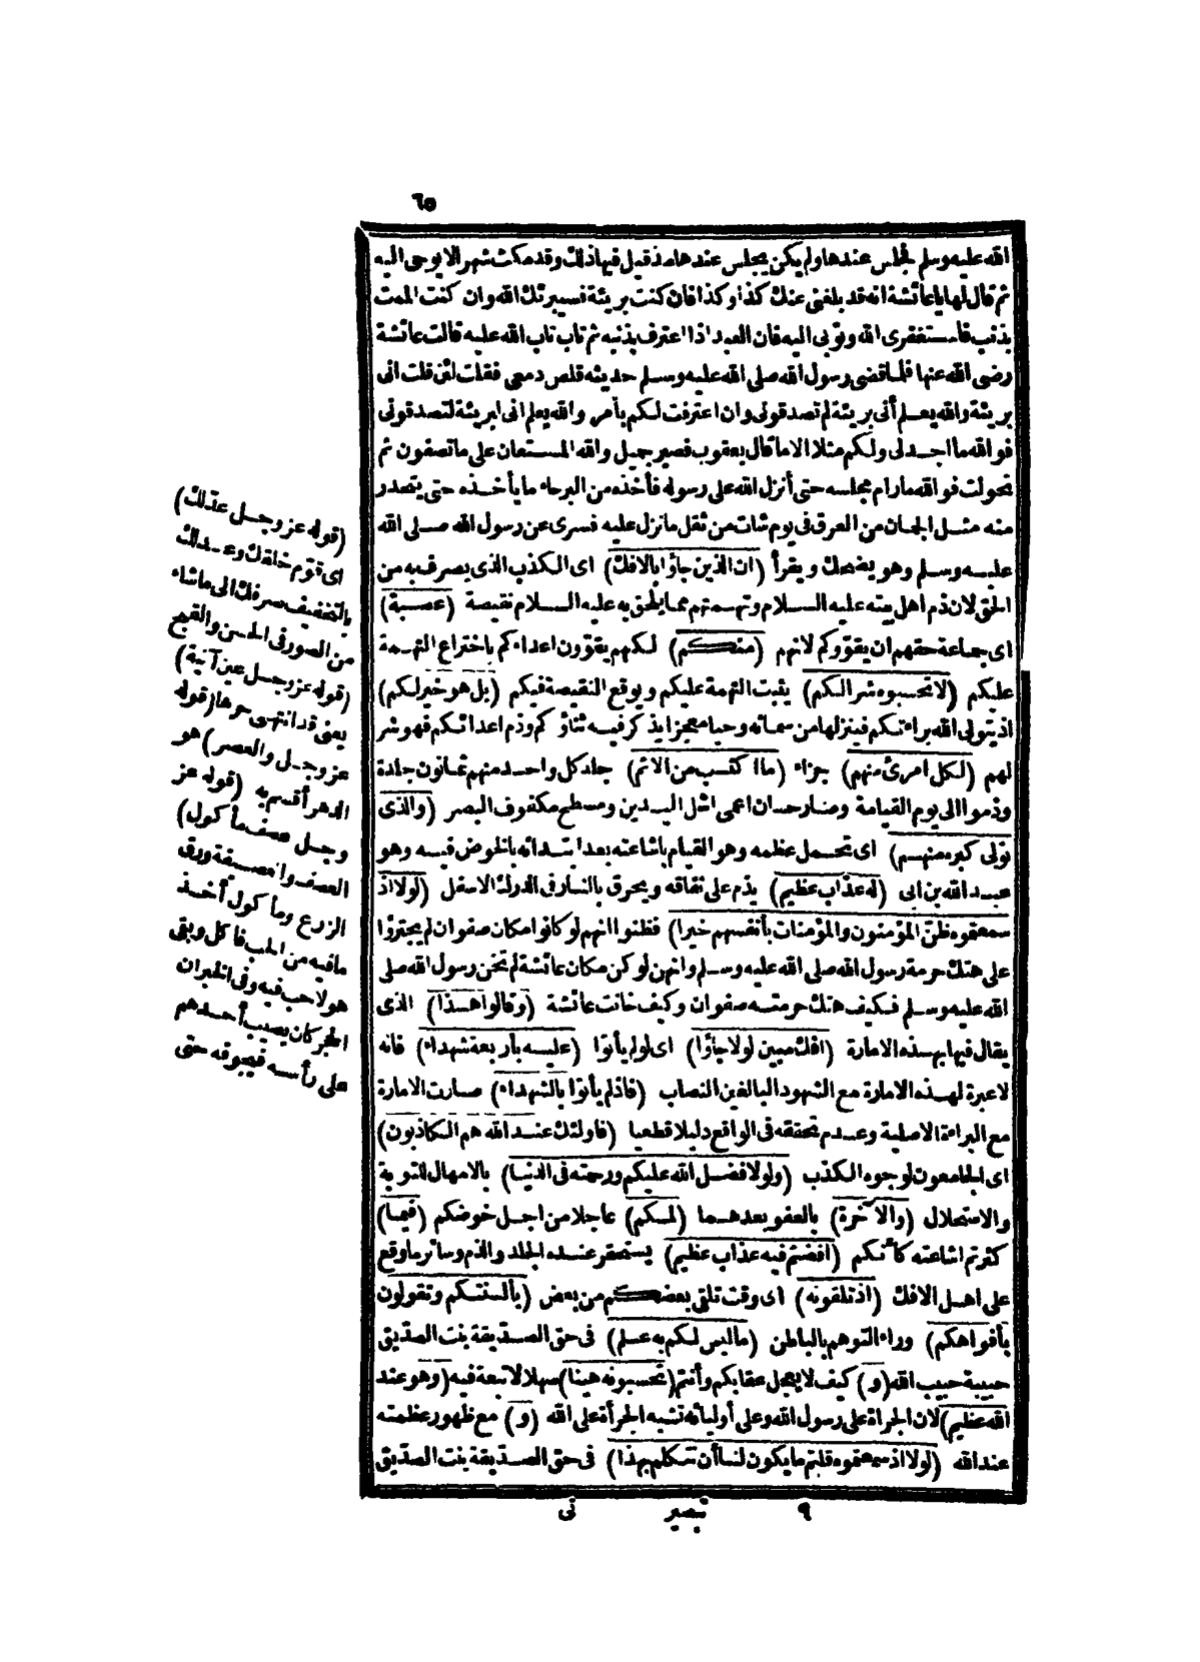 ٦٥
الله عليه وسلم فجلس عندها ولم يكن يجلس عندها مذ قيل فيها ذلك وقد مكث شهرا لا يوحى اليه
ثم قال لها يا عائشة انه قد بلغنى عنك كذا وكذا فان كنت بريئة فسيبرئك الله وان كنت الممت
بذنب فاستغفرى الله وتوبى اليه فان العبد اذا اعترف بذنبه ثم تاب تاب الله عليه قالت عائشة
رضى الله عنها فلما قضى رسول الله صلى الله عليه وسلم حديثه قلص دمعى فقلت لئن قلت انى
بريئة والله يعلم أنى بريئة لم تصدقونى وان اعترفت لكم بأمر والله يعلم انى لبريئة لتصدقونى
فوالله ما اجد لى ولكم مثلا الا ما قال يعقوب فصبر جميل والله المستعان على ما تصفون ثم
تحولت فوالله ما رام مجلسه حتى أنزل الله على رسوله فأخذه من البرحاء ما يأخذه حتى يتصدر
منه مثل الجمان من العرق فى يوم شات من ثقل ما نزل عليه فسرى عن رسول الله صلى الله
عليه وسلم وهو يضحك ويقرأ (ان الذين جاؤا بالافك) اى الكذب الذى يصرف به من
الحق لان ذم اهل بيته عليه السلام وتهمتهم مما يلحق به عليه السلام نقيصة (عصبة)
اى جماعة حقهم ان يقوّوكم لانهم (منكم) لكنهم يقوّون اعداءكم باختراع التهمة
عليكم (لا تحسبوه شرا لكم) يثبت التهمة عليكم ويوقع النقيصة فيكم (بل هو خير لكم)
اذ يتولى الله براءتكم فينزلها من سمائه وحيا معجزا يذكر فيه ثناؤكم وذم اعدائكم فهو شر
لهم (لكل امرئ منهم) جزاء (ما اكتسب من الاثم) جلد كل واحد منهم ثمانون جلدة
وذموا الى يوم القيامة وصار حسان اعمى اشل اليدين ومسطح مكفوف البصر (والذى
تولى كبره منهم) اى تحمل عظمه وهو القيام باشاعته بعد ابتدائه بالخوض فيه وهو
عبد الله بن ابى (له عذاب عظيم) يذم على نفاقه ويحرق بالنار فى الدرك الاسفل (لولا اذ
سمعتموه ظنّ المؤمنون والمؤمنات بأنفسهم خيرا) فظنوا انهم لو كانوا مكان صفوان لم يجترؤا
على هتك حرمة رسول الله صلى الله عليه وسلم وانهن لو كن مكان عائشة لم تخن رسول الله صلى
الله عليه وسلم فكيف هتك حرمته صفوان وكيف خانت عائشة (وقالوا هذا) الذى
يقال فيها بهذه الامارة (افك مبين لولا جاؤا) اى لو لم يأتوا (عليه بأربعة شهداء) فانه
لا عبرة لهذه الامارة مع الشهود البالغين النصاب (فاذ لم يأتوا بالشهداء) صارت الامارة
مع البراءة الاصلية وعدم تحققه فى الواقع دليلا قطعيا (فاولئك عند الله هم الكاذبون)
اى الجامعون لوجوه الكذب (ولولا فضل الله عليكم ورحمته فى الدنيا) بالامهال للتوبة
والاستحلال (والآخرة) بالعفو بعدهما (لمسكم) عاجلا من اجل خوضكم (فيما)
كثرتم اشاعته كأنكم (افضتم فيه عذاب عظيم) يستحقر عنده الجلد والذم وسائر ما وقع
على اهل الافك (اذ تلقونه) اى وقت تلقى بعضكم من بعض (بألسنتكم وتقولون
بأفواهكم) وراء التوهم بالباطن (ما ليس لكم به علم) فى حق الصدّيقة بنت الصدّيق
حبيبة حبيب الله (و) كيف لا يعجل عقابكم وأنتم (تحسبونه هينا) سهلا لا تبعة فيه (وهو عند
الله عظيم) لان الجراة على رسول الله وعلى أوليائه تشبه الجرأة على الله (و) مع ظهور عظمته
عند الله (لولا اذ سمعتموه قلتم ما يكون لنا أن نتكلم بهذا) فى حق الصدّيقة بنت الصدّيق
٩ تبصير نى
(قوله عز وجل عدلك)
اى قوّم خلقك وعدلك
بالتخفيف صرفك الى ما شاء
من الصور فى الحسن والقبح
(قوله عز وجل عين آنية)
يعنى قد انتهى حرها (قوله
عز وجل والعصر) هو
الدهر أقسم به (قوله عز
وجل عصف مأكول)
العصف والعصيفة ورق
الزرع ومأكول أخذ
ما فيه من الحب فأكل وبقى
هو لا حب فيه وفى الخبران
الحجر كان يصيب أحدهم
على رأسه فيجوفه حتى